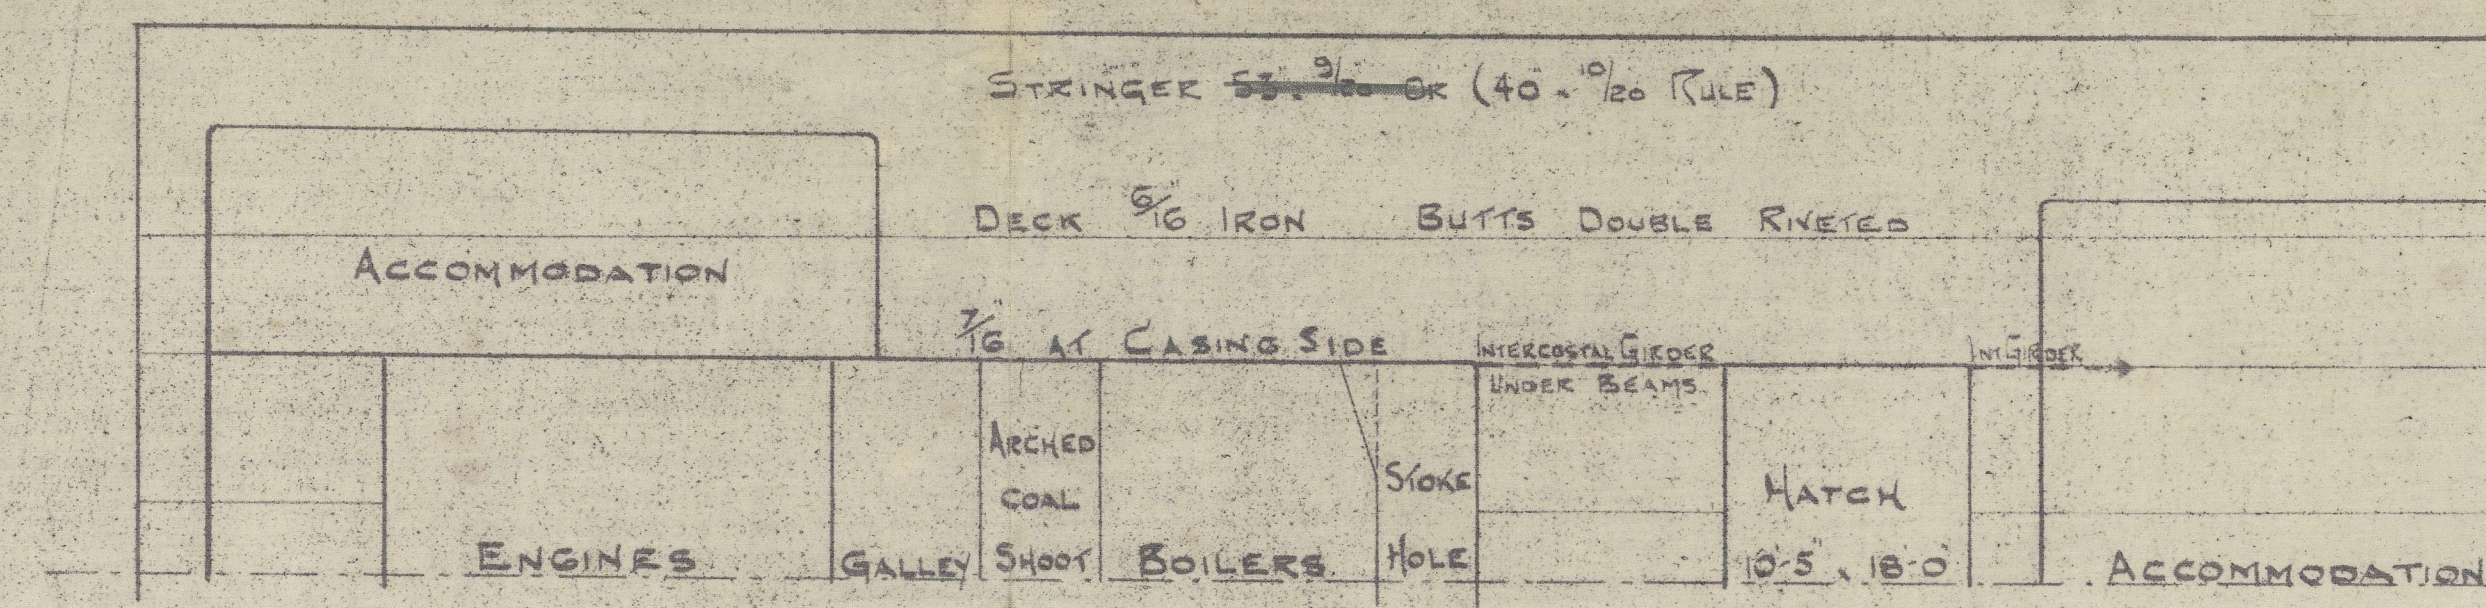 STRINGER 53" × 9/20" OR (40" × 10/20" RULE)
DECK 6/16" IRON BUTTS DOUBLE RIVETED
ACCOMMODATION
7/16" AT CASING SIDE
INTERCOSTAL GIRDER
UNDER BEAMS
INT GIRDER
ENGINES
GALLEY
ARCHED
COAL
SHOOT
BOILERS
STOKE
HOLE
HATCH
10'-5" × 18'-0"
ACCOMMODATION